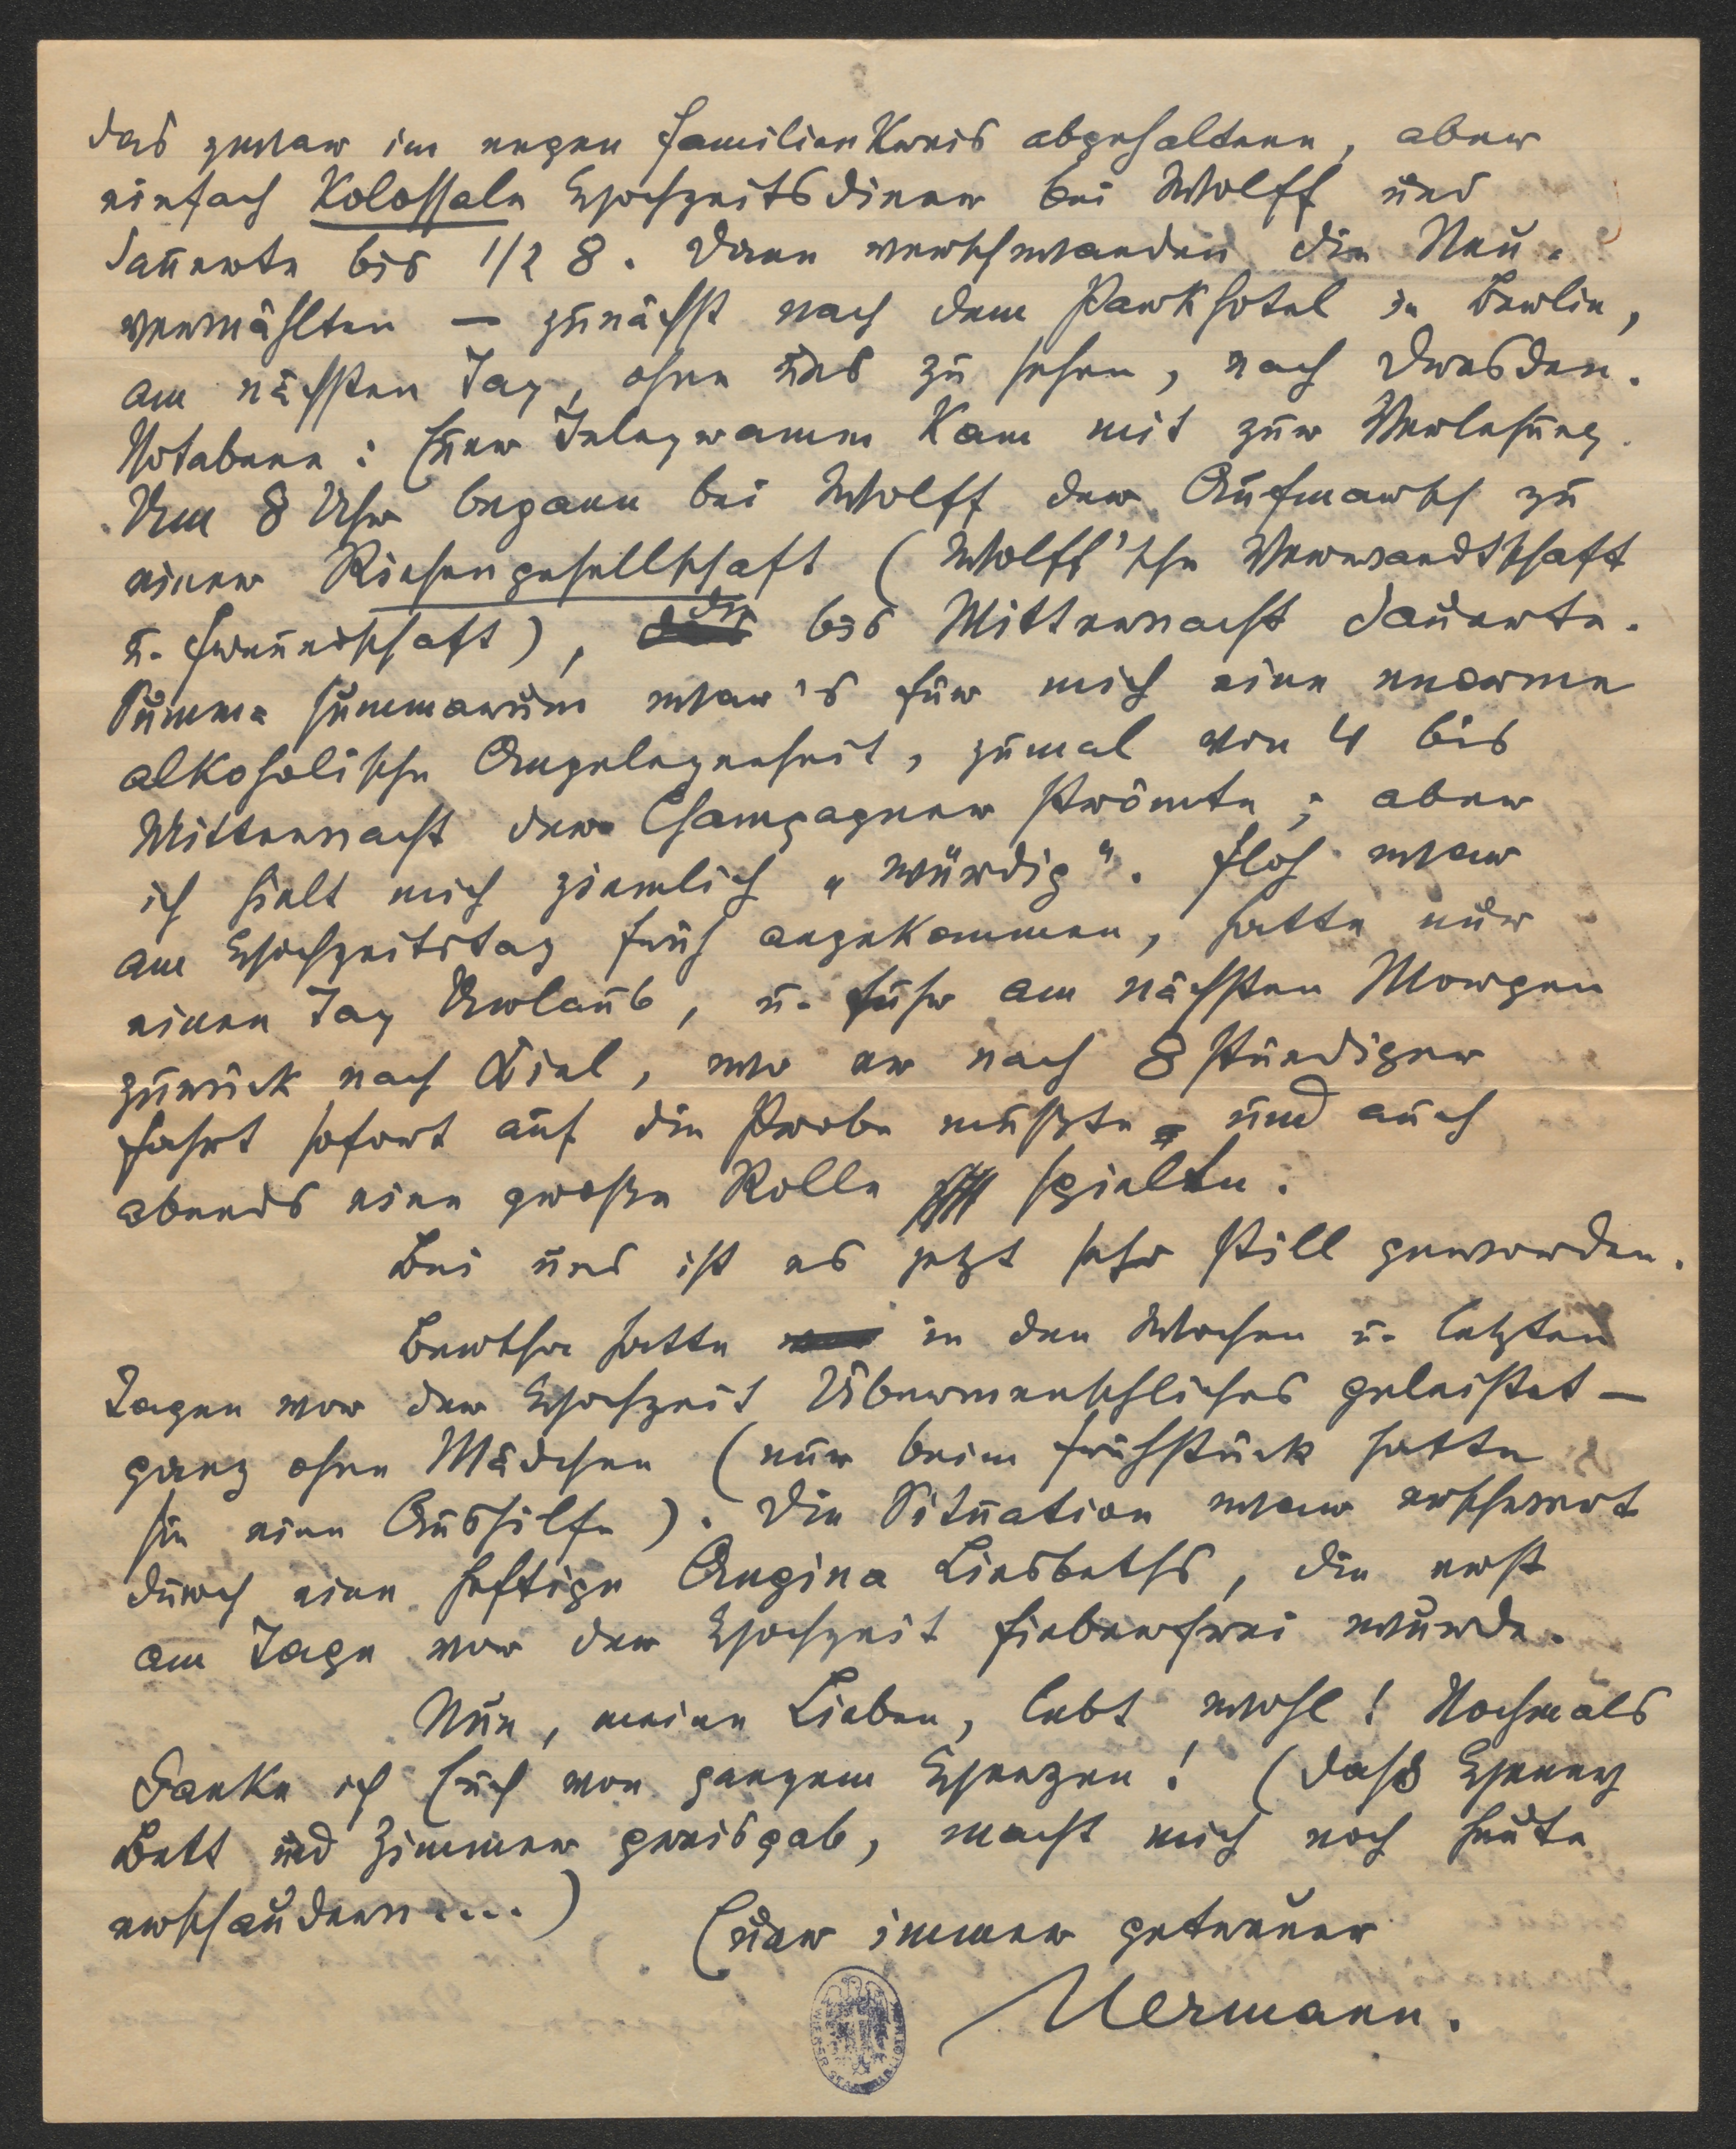 das zwar im engen Familienkreis abgehaltene, aber
einfach kolossale Hochzeitsdiner bei Wolff und
dauerte bis 1/2 8. Dann verschwanden die Neu-
vermählten — zunächst nach dem Parkhotel in Berlin,
am nächsten Tag, ohne uns zu sehen, nach Dresden.
Notabene: Euer Telegramm kam mit zur Verlesung.
Um 8 Uhr begann bei Wolff der Aufmarsch zu
einer Riesengesellschaft (Wolff'sche Verwandtschaft
u. Freundschaft), die bis Mitternacht dauerte.
Summa summarum war's für mich eine enorme
alkoholische Angelegenheit, zumal von 4 bis
Mitternacht der Champagner strömte; aber
ich hielt mich ziemlich „würdig“. Floh war
am Hochzeitstag früh angekommen, hatte nur
einen Tag Urlaub, u. fuhr am nächsten Morgen
zurück nach Kiel, wo er nach 8stündiger
Fahrt sofort auf die Probe mußte und auch
abends eine große Rolle spielte.
Bei uns ist es jetzt sehr still geworden.
Bertha hatte in den Wochen u. letzten
Tagen vor der Hochzeit Übermenschliches geleistet —
ganz ohne Mädchen (nur beim Frühstück hatte
sie eine Aushilfe). Die Situation war erschwert
durch eine heftige Angina Liesbeths, die erst
am Tage vor der Hochzeit fieberfrei wurde.
Nun, meine Lieben, lebt wohl! Nochmals
danke ich Euch von ganzem Herzen! (Daß Henny
Bett und Zimmer preisgab, macht mich noch heute
erschaudern....)
Euer immer getreuer
Hermann.